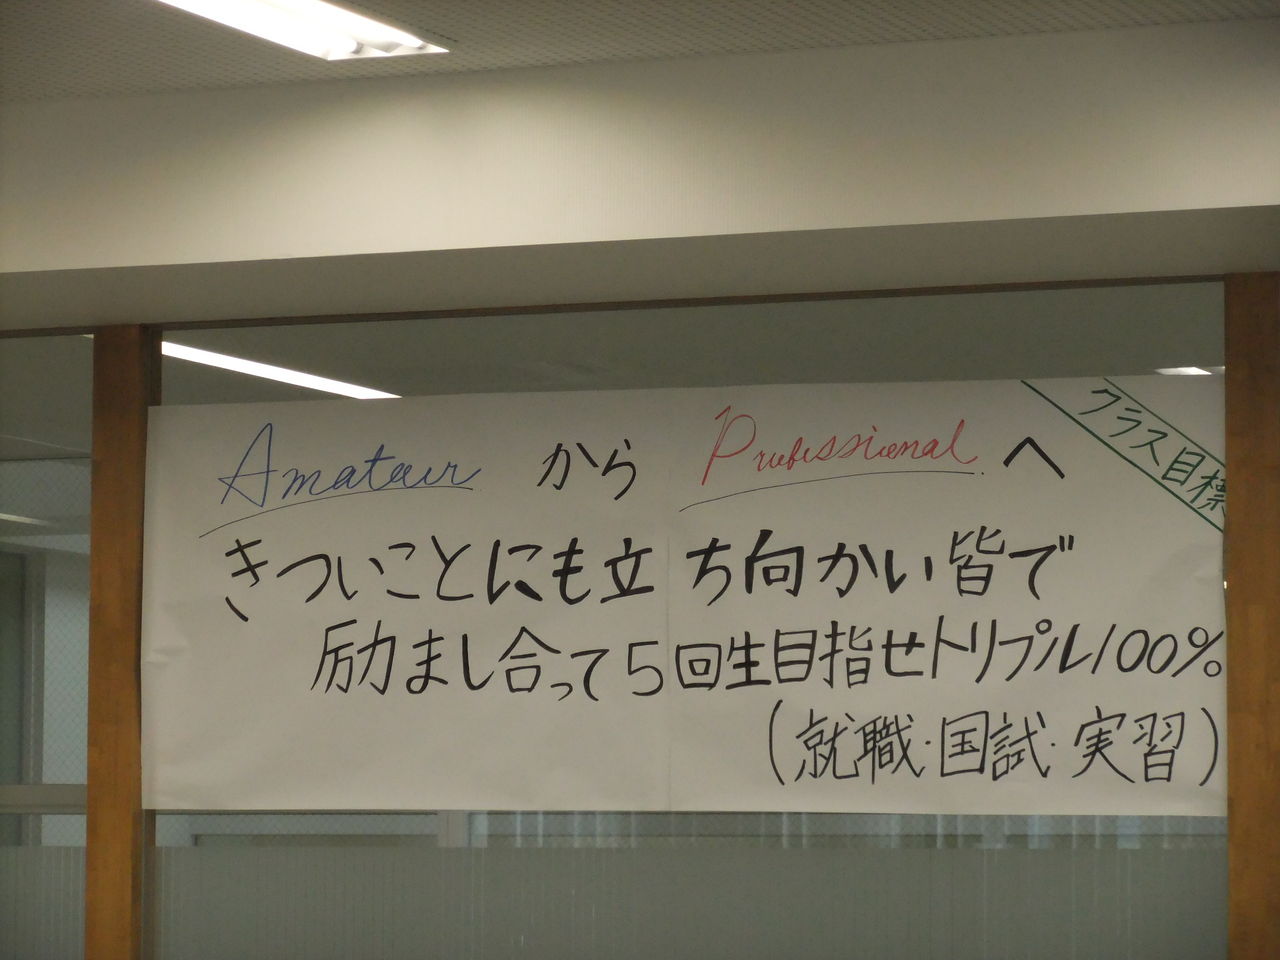 クラス目標
Amateur から Professional へ
きついことにも立ち向かい皆で
励まし合って5回生目指せトリプル100%
(就職・国試・実習)